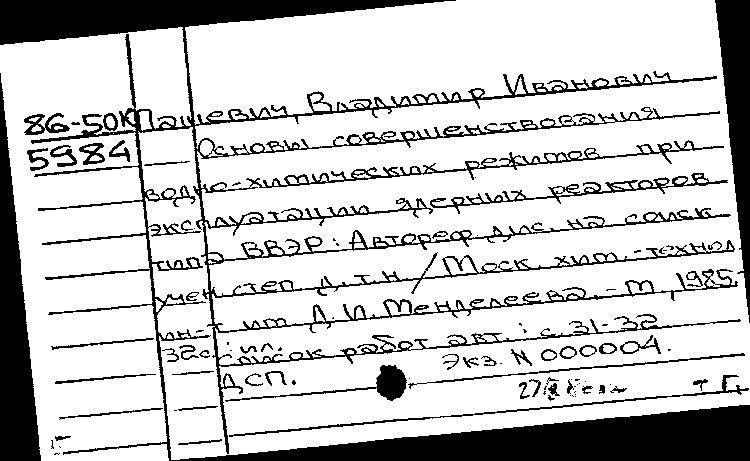 86-50К Пашевич, Владимир Иванович
5984 Основы совершенствования
водно-химических режимов при
эксплуатации ядерных реакторов
типа ВВЭР: Автореф. дис. на соиск.
учен. степ. д.т.н. / Моск. хим.-технол.
ин-т им. Д.И. Менделеева. - М., 1985. -
32с.: ил.
Список работ авт.: с. 31-32
ДСП. Экз. N 000004.